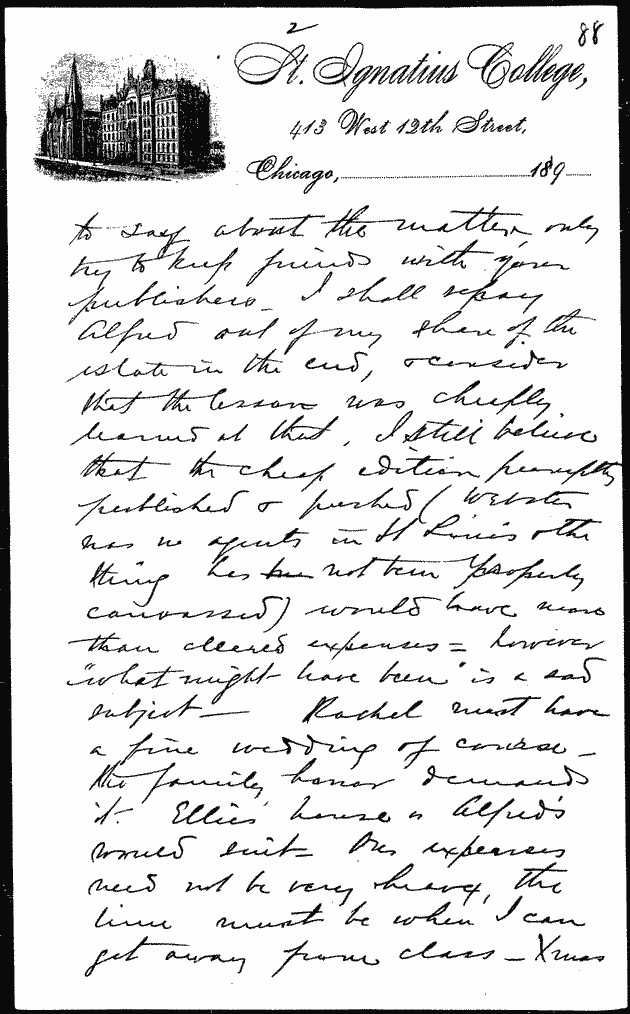 2
88
St. Ignatius College,
413 West 12th Street,
Chicago, 189
to say about the matter, only
try to keep friends with your
publishers _ I shall repay
Alfred out of my share of the
estate in the end, & consider
that the lesson was cheaply
learned at that. I still believe
that the cheap edition promptly
published & pushed (Webster
has no agents in St Louis & the
thing has not been properly
canvassed) would have more
than cleared expenses = however
"what might have been" is a sad
subject — Rachel must have
a fine wedding of course _
the family honor demands
it. Ellie's house or Alfred's
would suit _ expenses
need not be very heavy, the
time must be when I can
get away from class _ Xmas